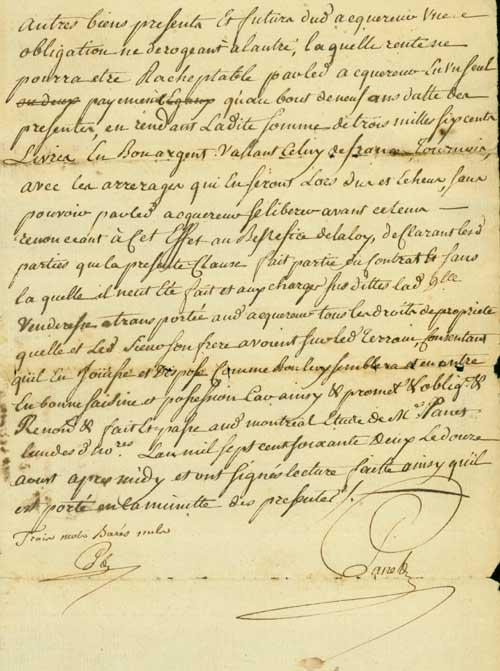 autres biens presents Et futurs dud acquereur Une
obligation ne derogeant a lautre, laquelle rente ne
pourra etre Racheptable par led acquereur En Un seul
ou deux payement Egaux quau bout de neuf ans datte des
presentes, en rendant Ladite somme de trois milles six cents
Livres En Bon argent Vallant Celuy de france Tournois,
avec les arrerages qui En seront Lors dus et Echeus, sans
pouvoir par led acquereur se liberer avant ce tems —
renonceant à Cet Effet au Benefice de la loy, declarant les d
parties que la presente Clause fait partie du Contrat & sans
la quelle il neut Eté fait et aux charges sus dittes lad
Venderesse a transporté aud acquereur tous les droits de proprieté
quelle et Led Sieur son frere avoient sur led Terrain Consentant
quil En Jouisse et Dispose Comme Bon luy semblera et en outre
En bonne saisine et possession Car ainsy & promet & oblig. &
Renon. & fait & passé aud montreal Etude de Me Panet
Lun des d. nores. L'an mil sept cent soixante deux Le douze
aoust apres midy et ont signés lecture faitte ainsy quil
est porté en la minutte des presentes /.
Trois mots Barés nuls
Panet